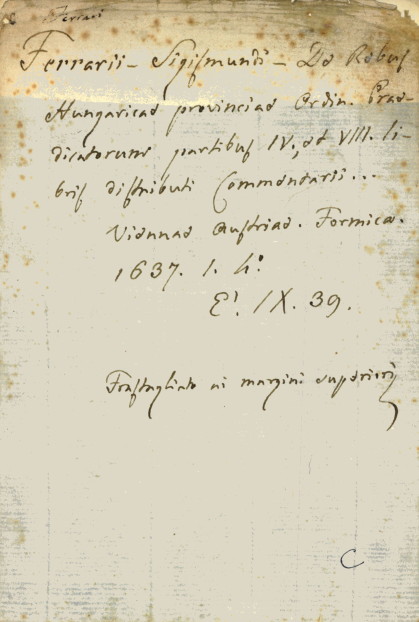 Ferrari
Ferrarii - Sigismundi - De Rebus
Hungaricae provinciae Ordin. Prae-
dicatorum partibus IV, et VIII. li-
bris distributi Commentarii...
Viennae Austriae. Formica.
1637. 1. 4°
E! IX. 39.
ai margini superiori
C